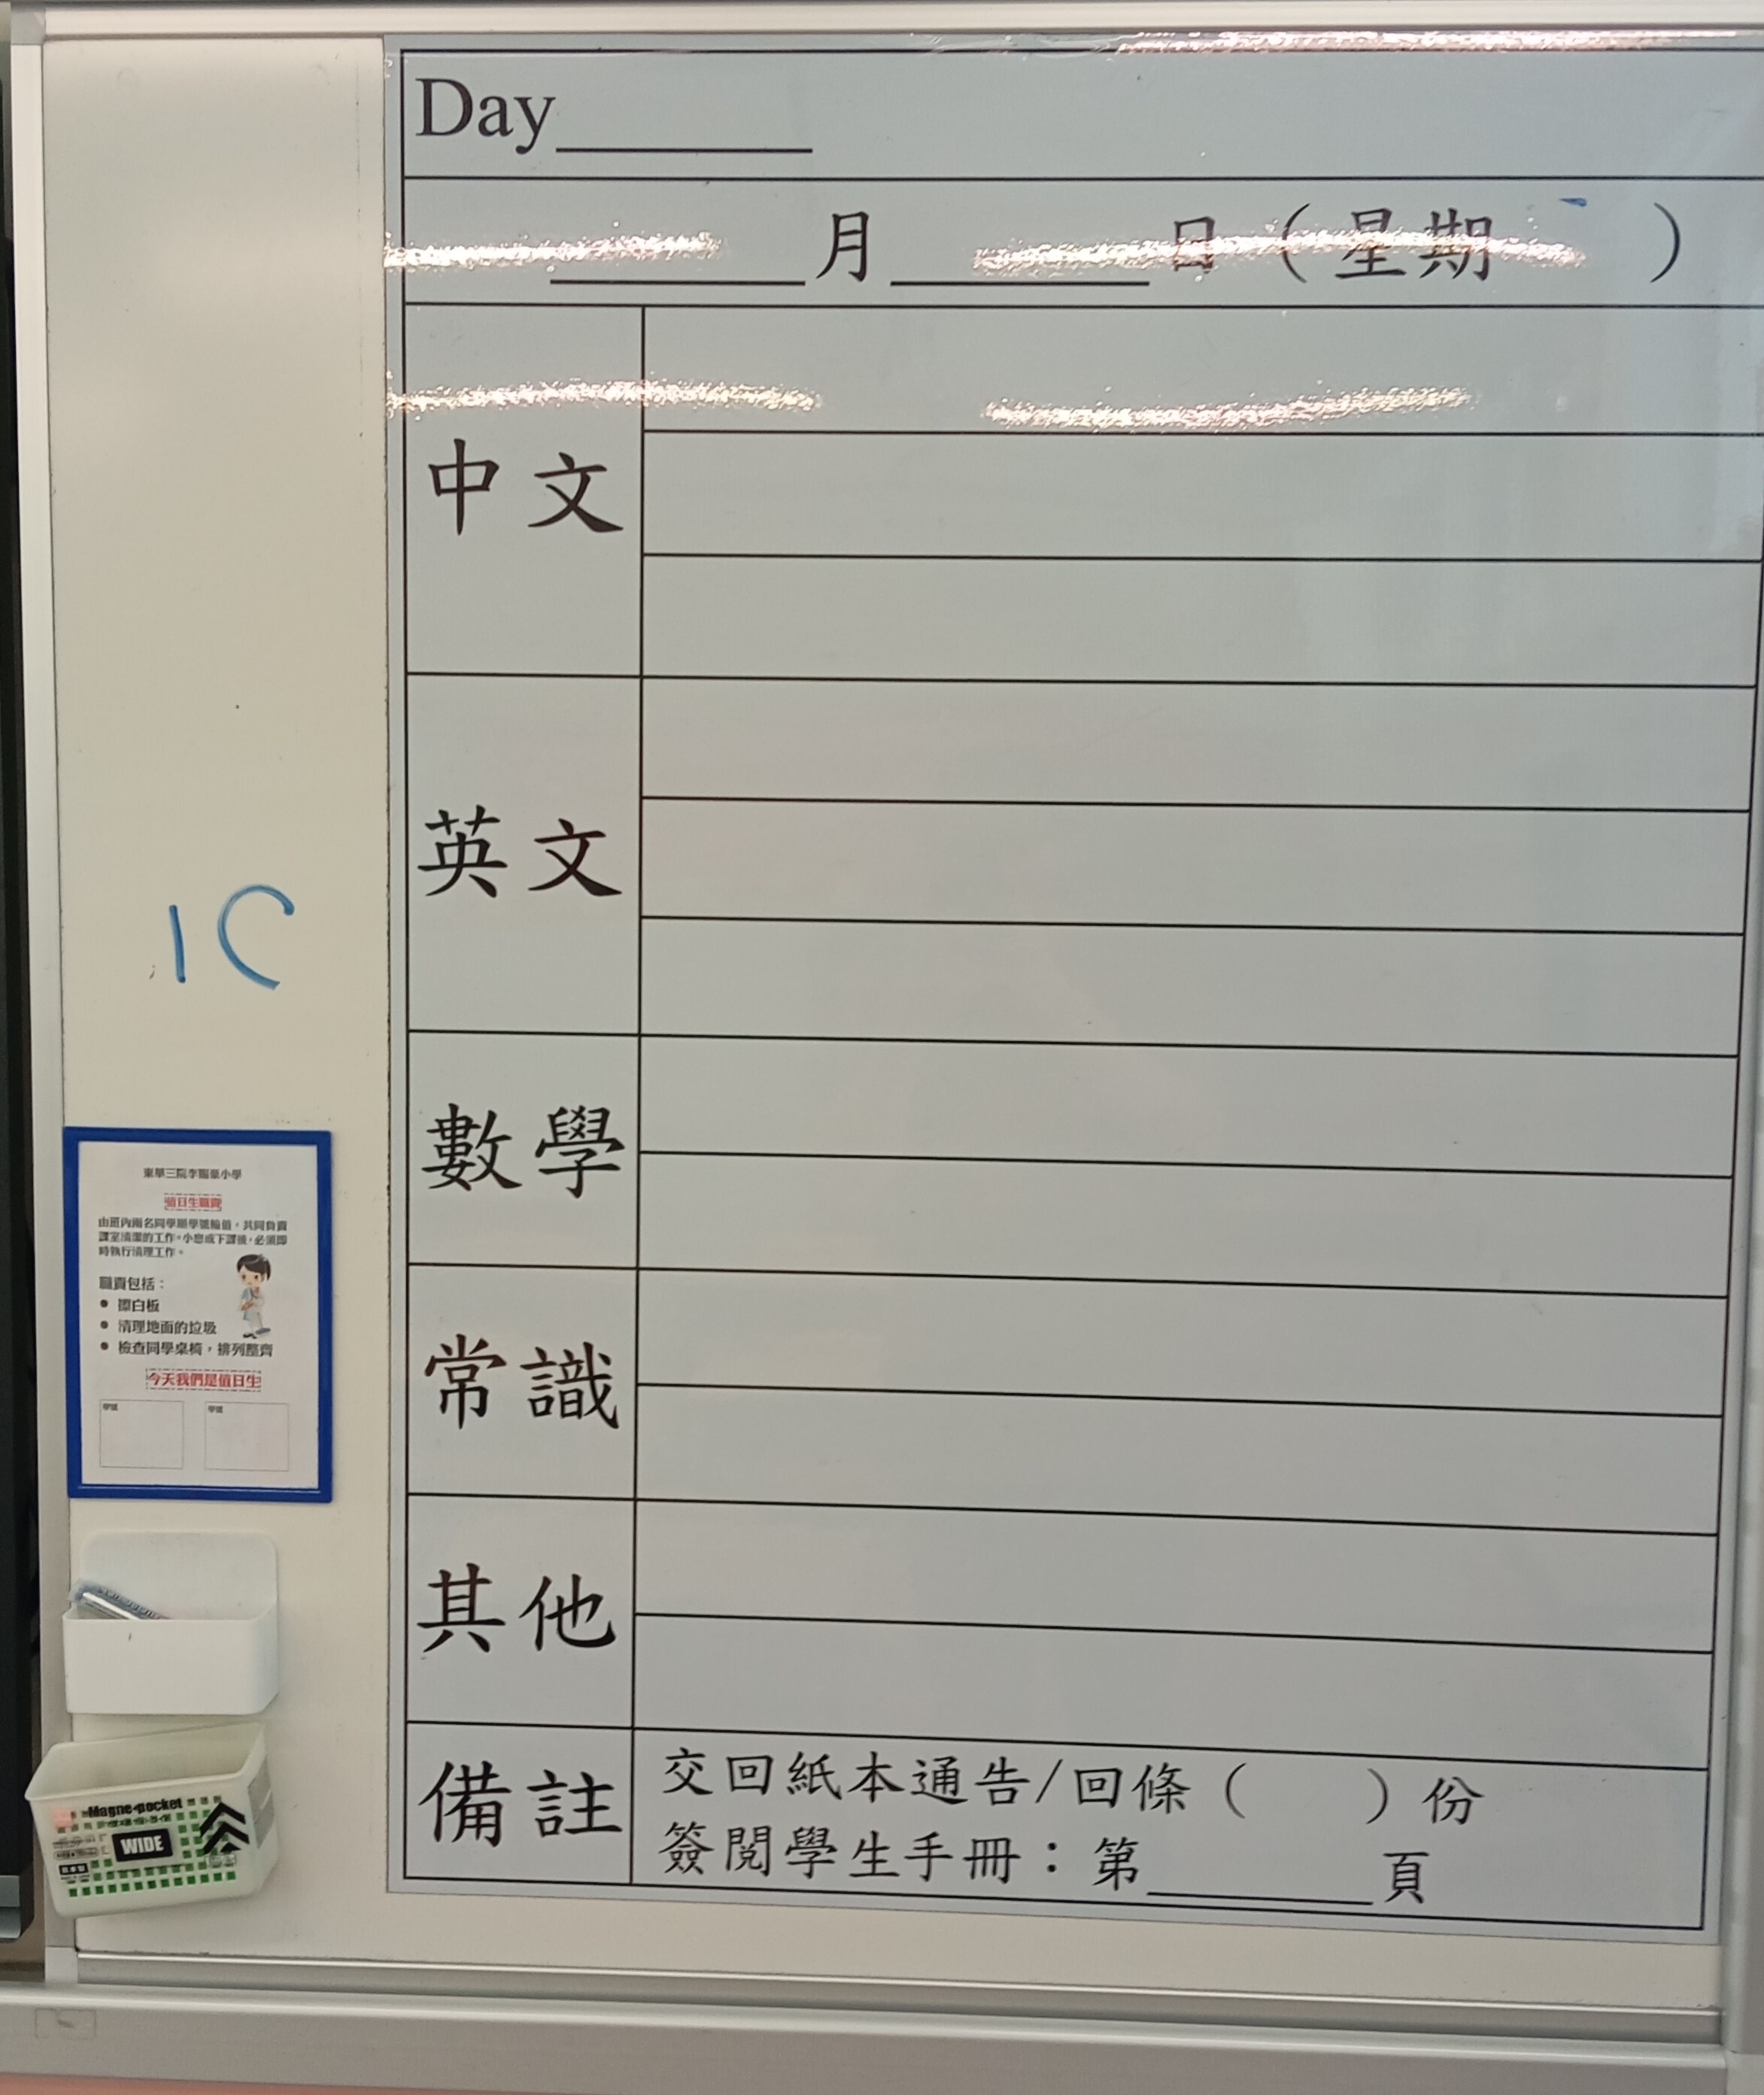 Day______
______月______日（星期 ）
中文
英文
數學
常識
其他
備註
交回紙本通告/回條（ ）份
簽閱學生手冊：第______頁
1C
東華三院李賜豪小學
值日生職責
由班內兩名同學順學號輪值，共同負責
課室清潔的工作。小息或下課後，必須即
時執行清理工作。
職責包括：
● 擦白板
● 清理地面的垃圾
● 檢查同學桌椅，排列整齊
今天我們是值日生
學號 學號
Magne-pocket
WIDE